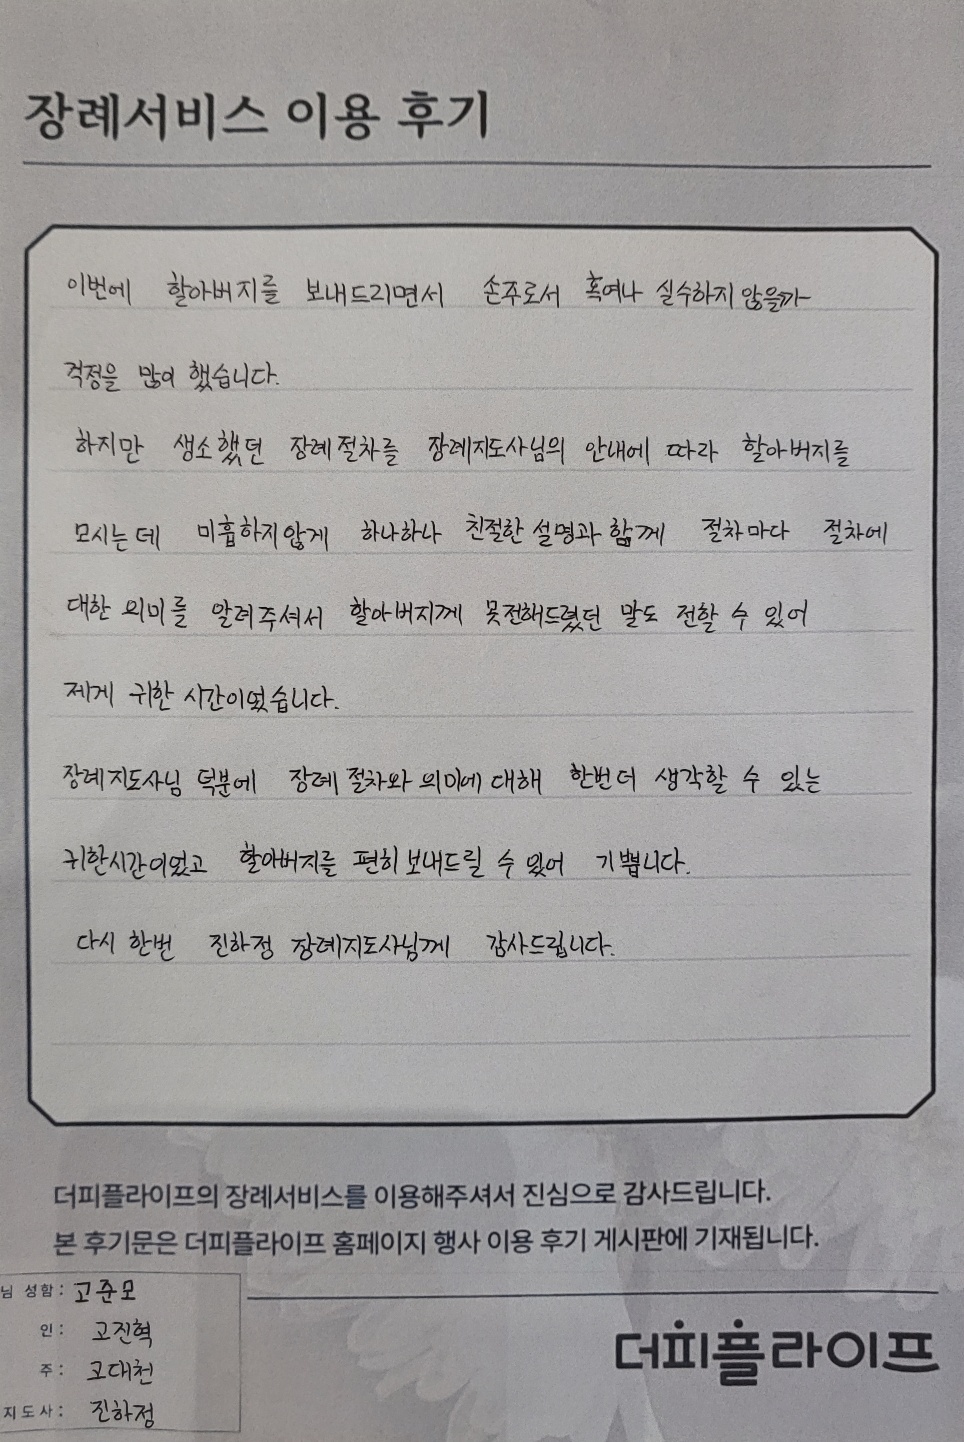 장례서비스 이용 후기
이번에 할아버지를 보내드리면서 손주로서 혹여나 실수하지 않을까
걱정을 많이 했습니다.
하지만 생소했던 장례절차를 장례지도사님의 안내에 따라 할아버지를
모시는 데 미흡하지않게 하나하나 친절한 설명과 함께 절차마다 절차에
대한 의미를 알려주셔서 할아버지께 못전해드렸던 말도 전할 수 있어
제게 귀한 시간이었습니다.
장례지도사님 덕분에 장례 절차와 의미에 대해 한번더 생각할 수 있는
귀한시간이었고 할아버지를 편히 보내드릴 수 있어 기쁩니다.
다시 한번 진하정 장례지도사님께 감사드립니다.
더피플라이프의 장례서비스를 이용해주셔서 진심으로 감사드립니다.
본 후기문은 더피플라이프 홈페이지 행사 이용 후기 게시판에 기재됩니다.
님 성함: 고준모
인: 고진혁
주: 고대천
지도사: 진하정
더피플라이프